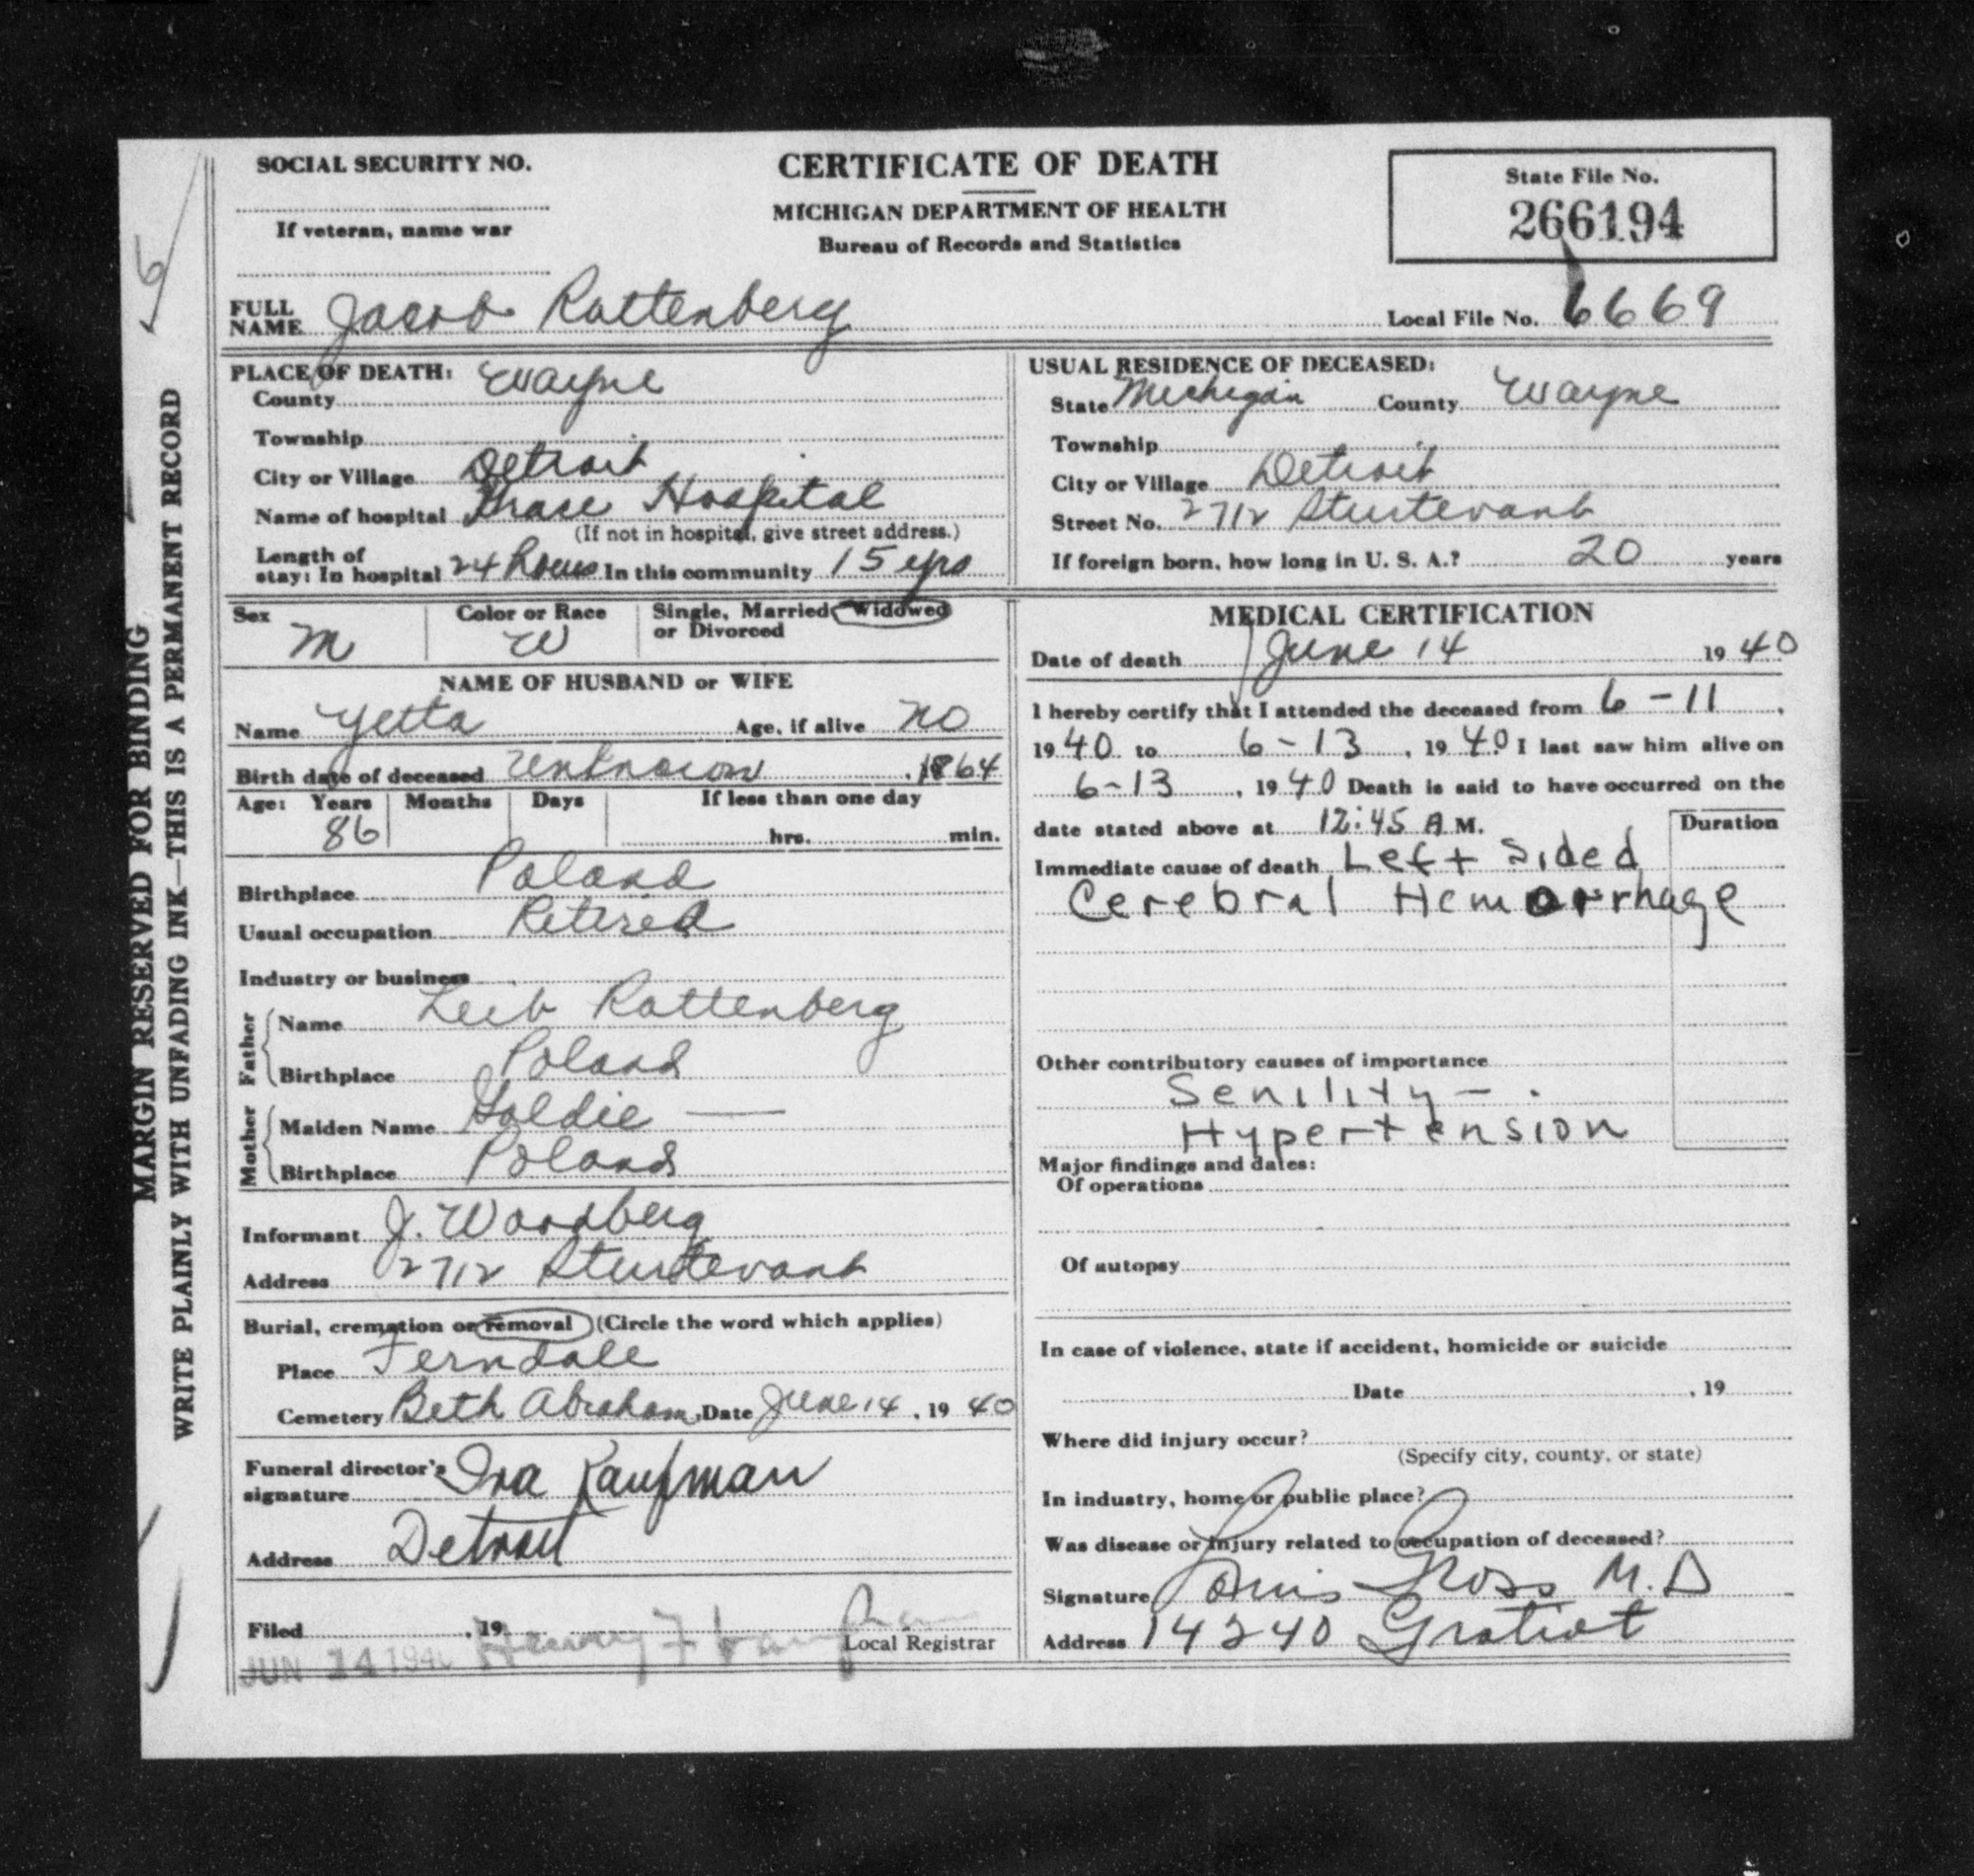 SOCIAL SECURITY NO.
If veteran, name war
CERTIFICATE OF DEATH
MICHIGAN DEPARTMENT OF HEALTH
Bureau of Records and Statistics
State File No.
266194
FULL NAME Jacob Rottenberg
Local File No. 6669
MARGIN RESERVED FOR BINDING
WRITE PLAINLY WITH UNFADING INK—THIS IS A PERMANENT RECORD
PLACE OF DEATH:
County Wayne
Township
City or Village Detroit
Name of hospital Grace Hospital
(If not in hospital, give street address.)
Length of
stay: In hospital 24 hours In this community 15 yrs
USUAL RESIDENCE OF DECEASED:
State Michigan County Wayne
Township
City or Village Detroit
Street No. 2712 Sturtevant
If foreign born, how long in U. S. A.? 20 years
Sex M
Color or Race W
Single, Married, Widowed
or Divorced
NAME OF HUSBAND or WIFE
Name Yetta Age, if alive no
Birth date of deceased Unknown , 1864
Age: Years Months Days If less than one day
86 hrs. min.
Birthplace Poland
Usual occupation Retired
Industry or business
Father
Name Leib Rottenberg
Birthplace Poland
Mother
Maiden Name Goldie —
Birthplace Poland
Informant J. Woodberg
Address 2712 Sturtevant
Burial, cremation or removal (Circle the word which applies)
Place Ferndale
Cemetery Beth Abraham, Date June 14, 19 40
Funeral director's
signature Ira Kaufman
Address Detroit
Filed , 19
JUN 14 1940 Henry F.
Local Registrar
MEDICAL CERTIFICATION
Date of death June 14 19 40
I hereby certify that I attended the deceased from 6-11,
19 40 to 6-13, 19 40 I last saw him alive on
6-13, 19 40 Death is said to have occurred on the
date stated above at 12:45 A M.
Duration
Immediate cause of death Left Sided
Cerebral Hemorrhage
Other contributory causes of importance
Senility -
Hypertension
Major findings and dates:
Of operations
Of autopsy
In case of violence, state if accident, homicide or suicide
Date , 19
Where did injury occur?
(Specify city, county, or state)
In industry, home or public place?
Was disease or injury related to occupation of deceased?
Signature Louis Ross M.D
Address 14240 Gratiot